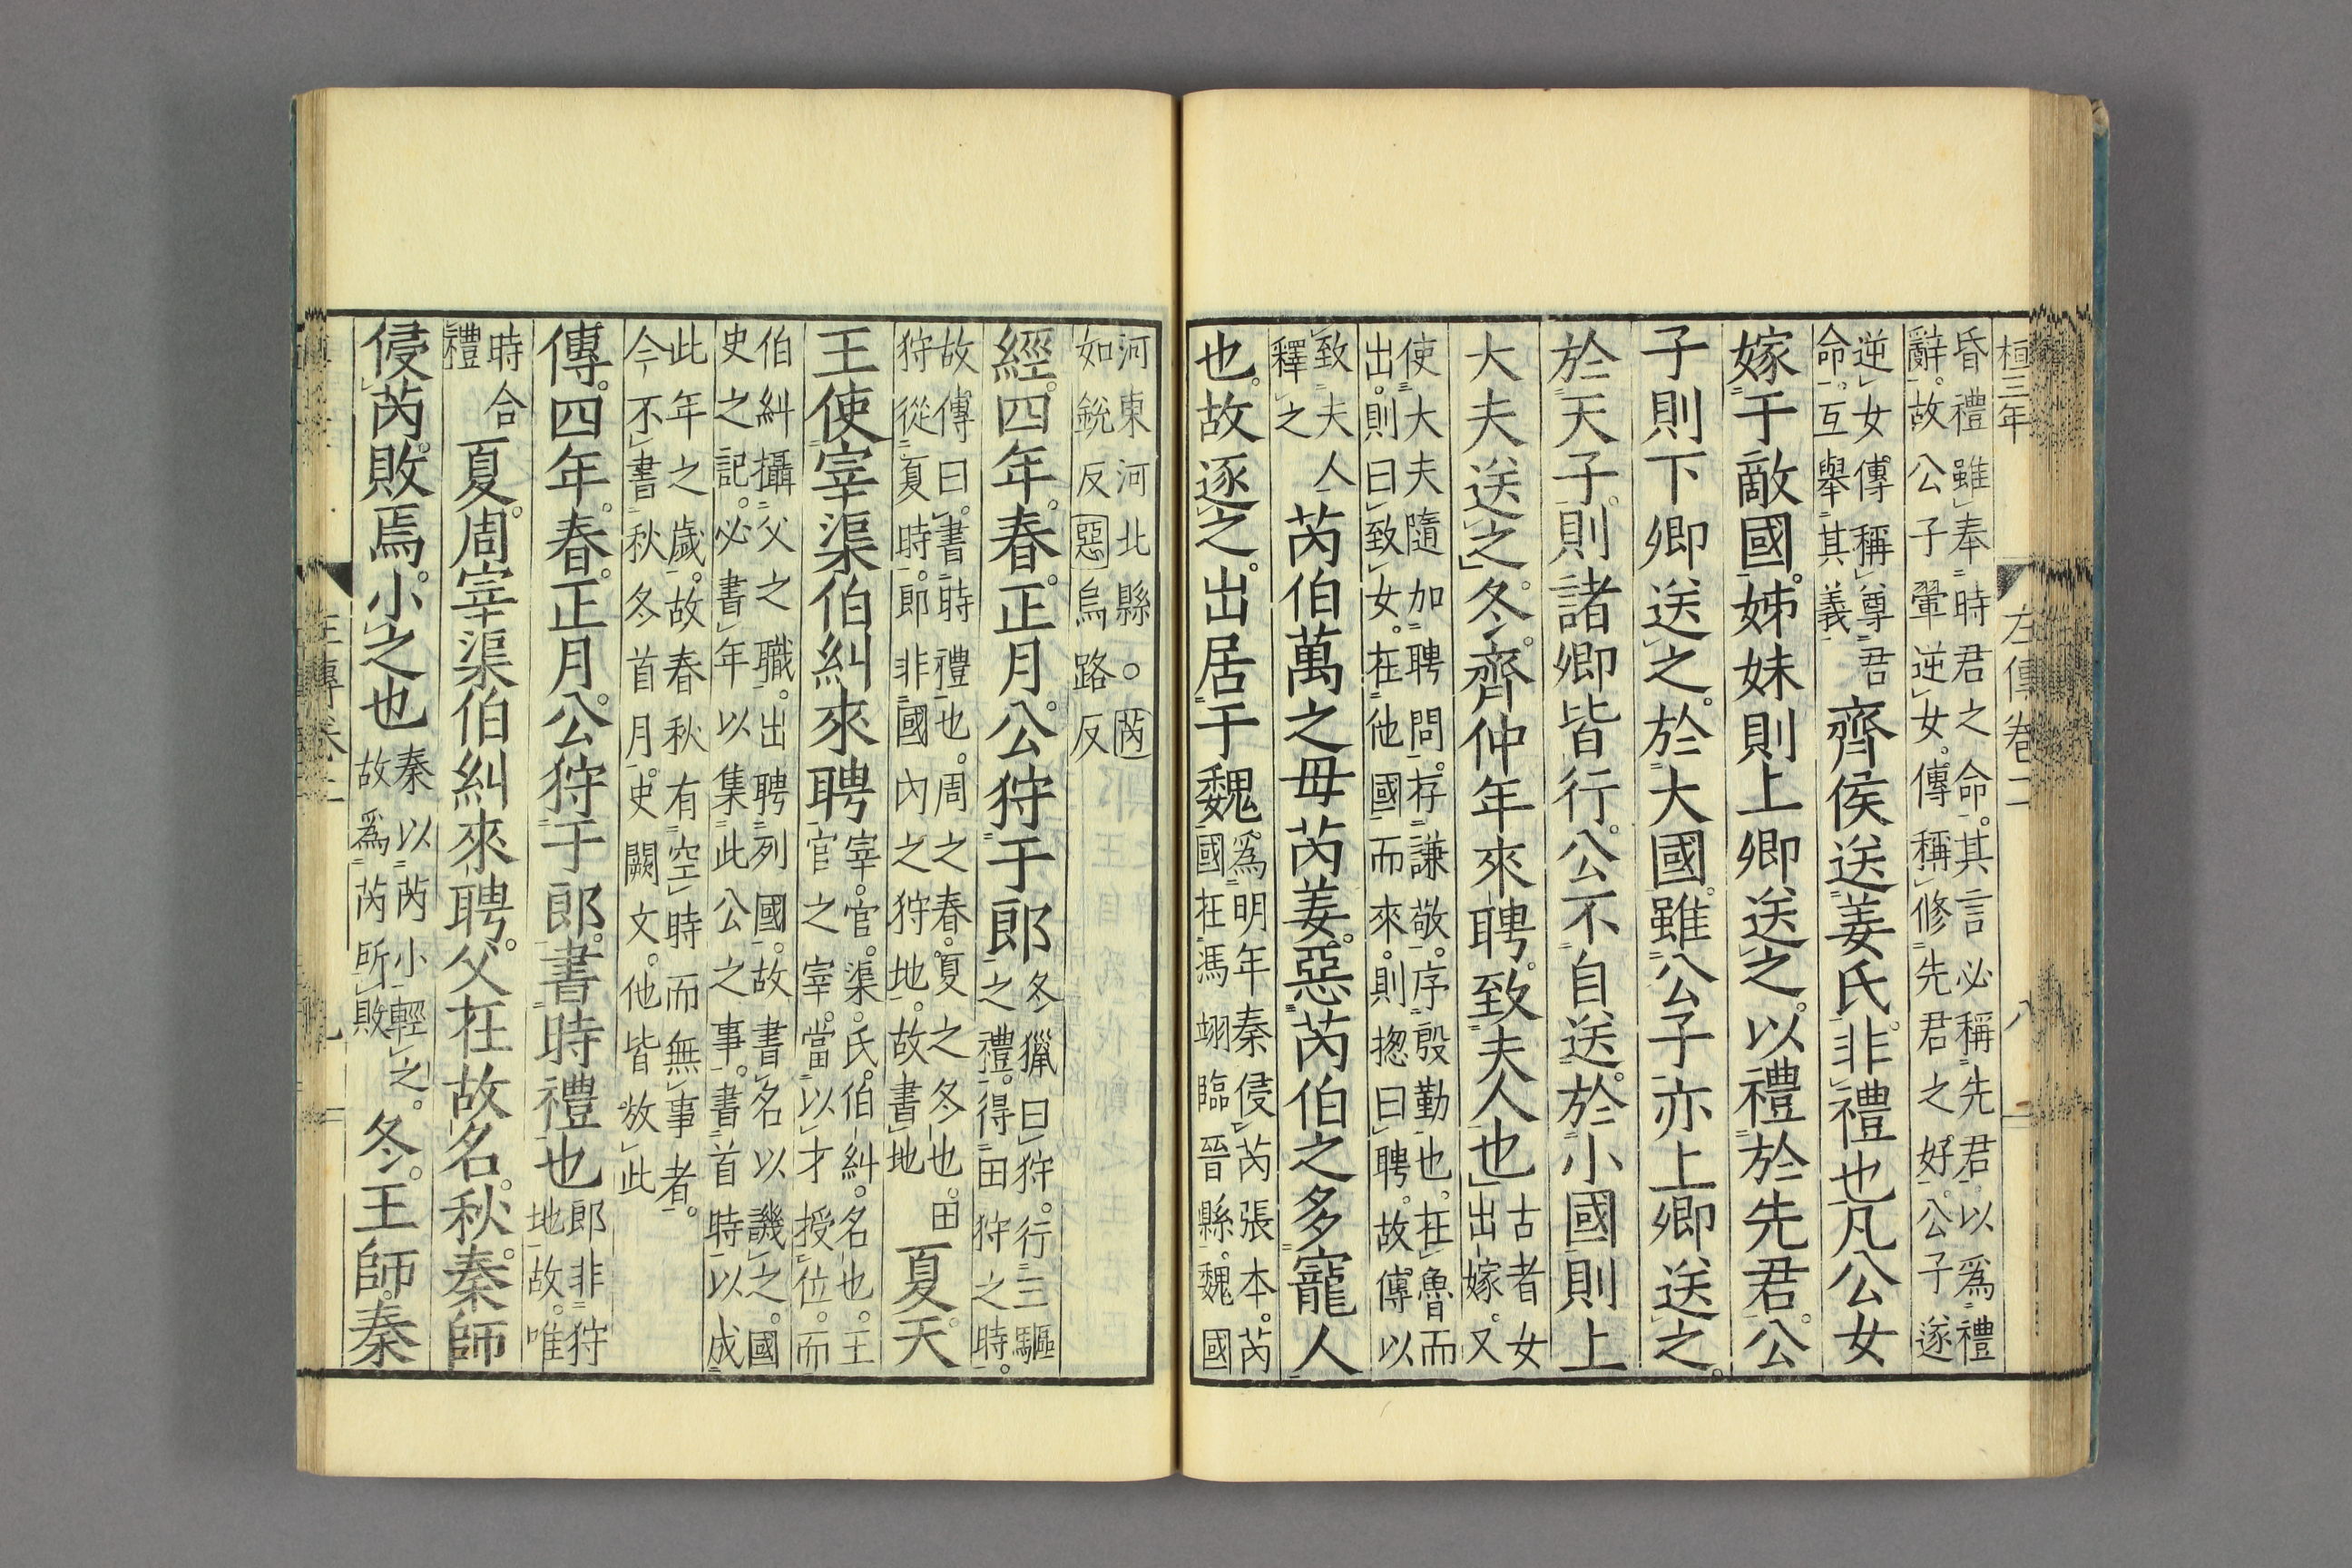 桓三年
左傳卷二
八
昏禮雖奉時君之命。其言必稱先君以爲禮
辭。故公子翬逆女。傳稱修先君之好。公子遂
逆女。傳稱尊君
命。互舉其義
齊侯送姜氏。非禮也。凡公女
嫁于敵國。姊妹則上卿送之。以禮於先君。公
子則下卿送之。於大國。雖公子亦上卿送之。
於天子。則諸卿皆行。公不自送。於小國則上
大夫送之。冬。齊仲年來聘。致夫人也
古者女
出嫁。又
使大夫隨加聘問。存謙敬。序殷勤也。在魯而
出。則曰致女。在他國而來。則揔曰聘。故傳以
致夫人
釋之
芮伯萬之母芮姜。惡芮伯之多寵人
也。故逐之。出居于魏。
爲明年秦侵芮張本。芮
國在馮翊臨晉縣。魏國
河東河北縣。芮
如銳反惡烏路反
經。四年。春。正月。公狩于郎
冬獵曰狩。行三驅
之禮。得田狩之時。
故傳曰。書時禮也。周之春。夏之冬也。田
狩從夏時。郎非國內之狩地。故書地
夏。天
王使宰渠伯糾來聘
宰。官。渠。氏。伯糾。名也。王
官之宰。當以才授位。而
伯糾攝父之職。出聘列國。故書名以譏之。國
史之記。必書年以集此公之事。書首時以成
此年之歲。故春秋有空時而無事者。
今不書秋冬首月。史闕文。他皆放此
傳。四年。春。正月。公狩于郎。書時禮也
郎非狩
地。故。唯
時合
禮
夏。周宰渠伯糾來聘。父在故名。秋。秦師
侵芮。敗焉。小之也
秦以芮小輕之。
故爲芮所敗
冬。王師。秦